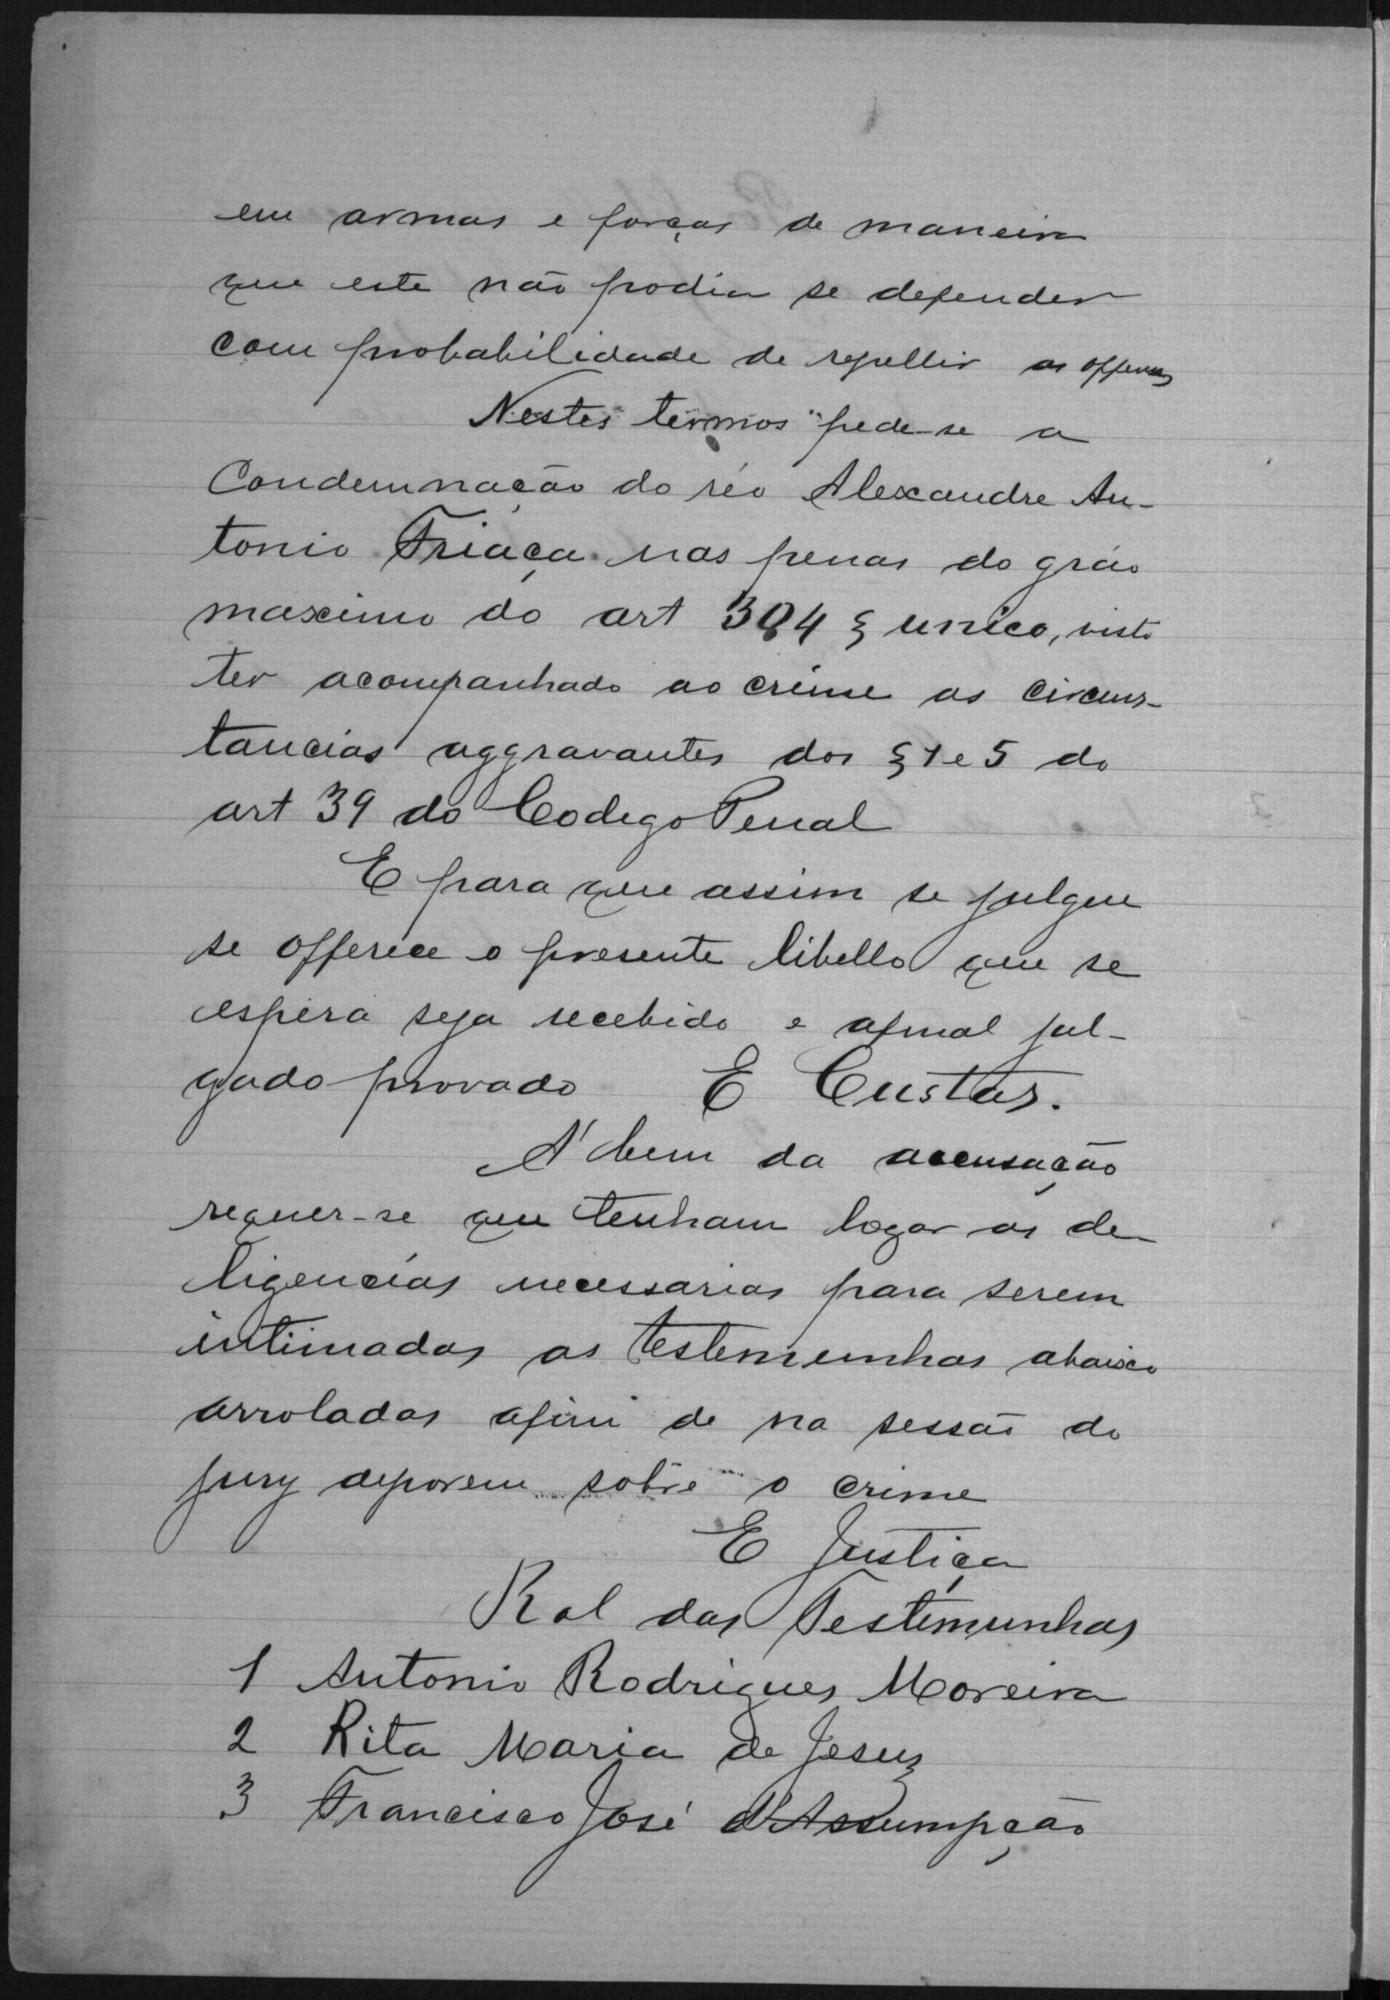 em armas e forças de maneira
que este não podia se defender
com probabilidade de repellir as offensas
Nestes termos pede-se a
Condemnação do réo Alexandre An-
tonio Friaça nas penas do gráo
maximo do art 304 § unico, visto
ter acompanhado ao crime as circuns-
tancias aggravantes dos § 1 e 5 do
art 39 do Codego Penal
E para que assim se julgue
se offerece o presente libello que se
espera seja recebido e afinal jul-
gado provado E Custas.
A' bem da accusação
requer-se que tenham logar as de-
ligencias necessarias para serem
intimadas as testemunhas abaixo
arroladas afim de na sessão do
jury deporem sobre o crime
E Justiça
Rol das Testemunhas
1 Antonio Rodrigues Moreira
2 Rita Maria de Jesus
3 Francisco José d'Assumpção